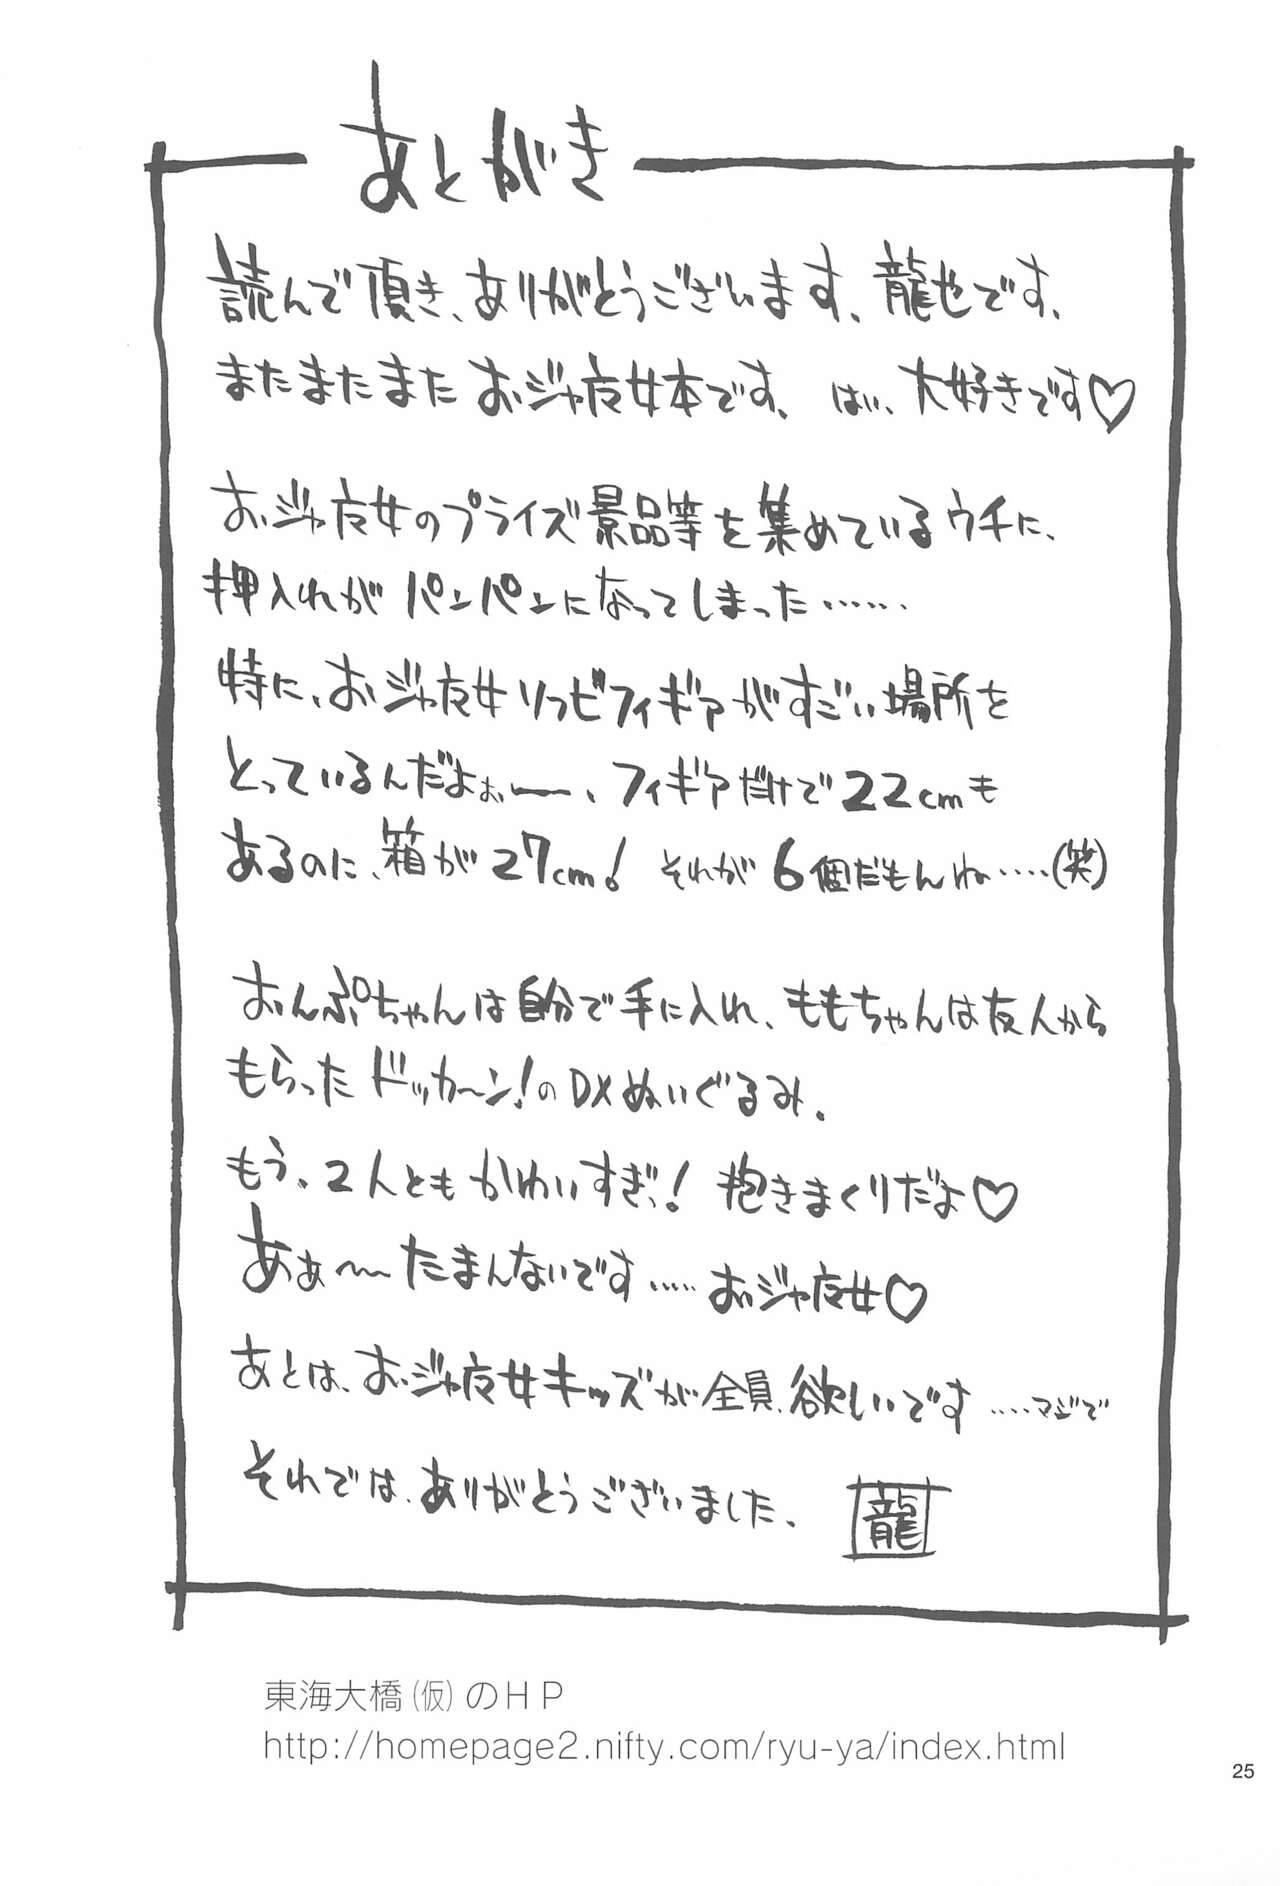 あとがき
読んで頂き、ありがとうございます、龍也です、
またまたまたおジャ魔女本です、はい、大好きです♡
おジャ魔女のプライズ景品等を集めているウチに、
押入れがパンパンになってしまった……
特に、おジャ魔女ソフビフィギアがすごい場所を
とっているんだよぉー、フィギアだけで22cmも
あるのに、箱が27cm!それが6個だもんね……(笑)
おんぷちゃんは自分で手に入れ、ももちゃんは友人から
もらったドッカ〜ン!のDXぬいぐるみ。
もう、2人ともかわいすぎっ!抱きまくりだよ♡
あぁ〜たまんないです……おジャ魔女♡
あとは、おジャ魔女キッズが全員、欲しいです……マジで
それでは、ありがとうございました、
龍
東海大橋(仮)のHP
http://homepage2.nifty.com/ryu-ya/index.html
25